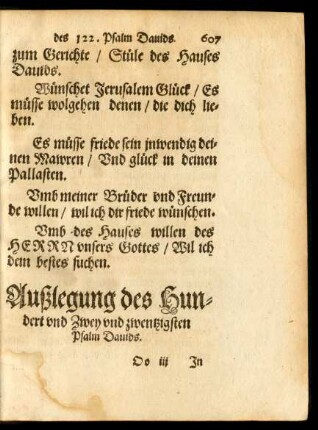 des 122. Psalm Dauids. 607
zum Gerichte / Stüle des Hauses
Dauids.
Wünschet Jerusalem Glück / Es
müsse wolgehen denen / die dich lie-
ben.
Es müsse friede sein jnwendig dei-
nen Mawren / Vnd glück in deinen
Pallasten.
Vmb meiner Brüder vnd Freun-
de willen / wil ich dir friede wünschen.
Vmb des Hauses willen des
HERRN vnsers Gottes / Wil ich
dem bestes suchen.
Außlegung des Hun-
dert vnd Zwey vnd zwentzigsten
Psalm Dauids.
Oo iii In